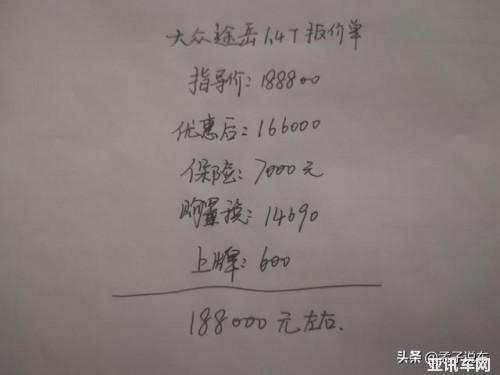 大众途岳1.4T报价单
指导价:188800
优惠后:166000
保险:7000元
购置税:14690
上牌:600
188000元左右.
头条@孟子说车
亚讯车网